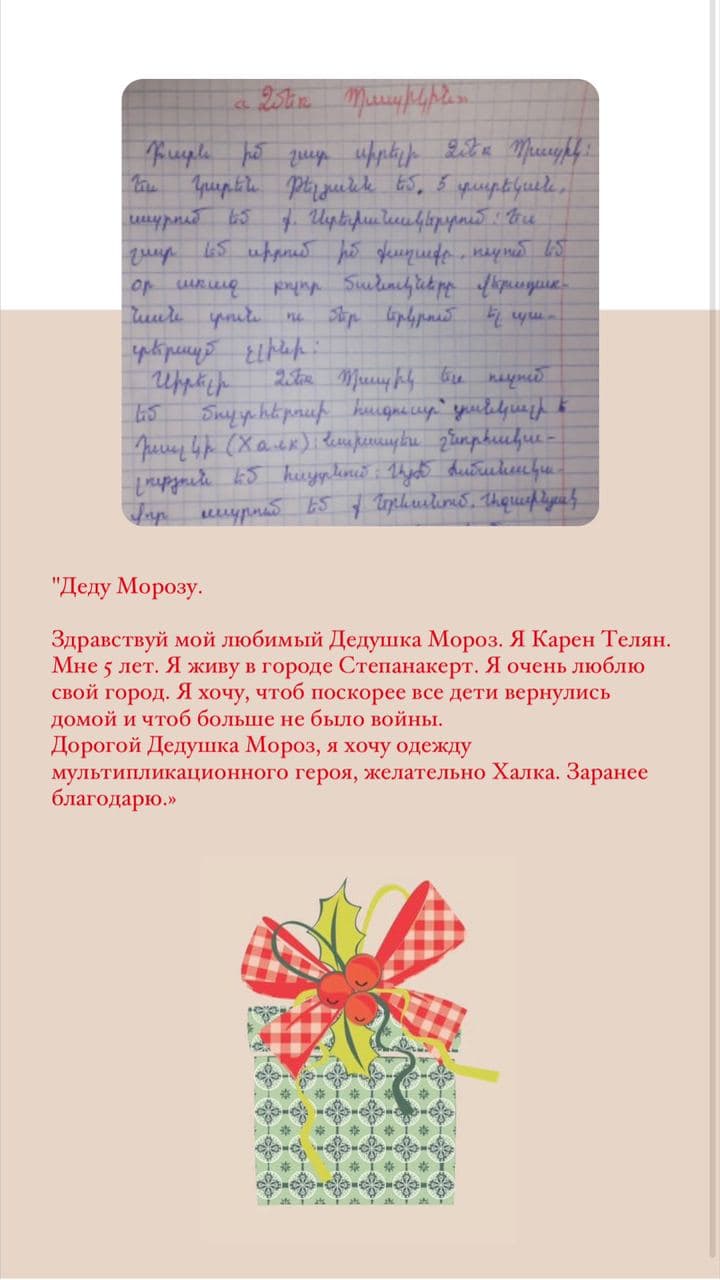 « Ձմեռ Պապիկին»
Բարև իմ շատ սիրելի Ձմեռ Պապիկ:
Ես Կարեն Թելյանն եմ, 5 տարեկան,
ապրում եմ ք. Ստեփանակերտում: Ես
շատ եմ սիրում իմ քաղաքը, ուզում եմ
որ արագ բոլոր տանուկները վերադառ-
նան տուն ու մեր երկրում էլ պա-
տերազմ չլինի:
Սիրելի Ձմեռ Պապիկ ես ուզում
եմ մուլտհերոսի հագուստ՝ ցանկալի է
Խալկի (Халк): Նախապես շնորհակա-
լություն եմ հայտնում: Այժմ ժամանակա-
վոր ապրում եմ ք Երևանում,
"Деду Морозу.
Здравствуй мой любимый Дедушка Мороз. Я Карен Телян.
Мне 5 лет. Я живу в городе Степанакерт. Я очень люблю
свой город. Я хочу, чтоб поскорее все дети вернулись
домой и чтоб больше не было войны.
Дорогой Дедушка Мороз, я хочу одежду
мультипликационного героя, желательно Халка. Заранее
благодарю.»